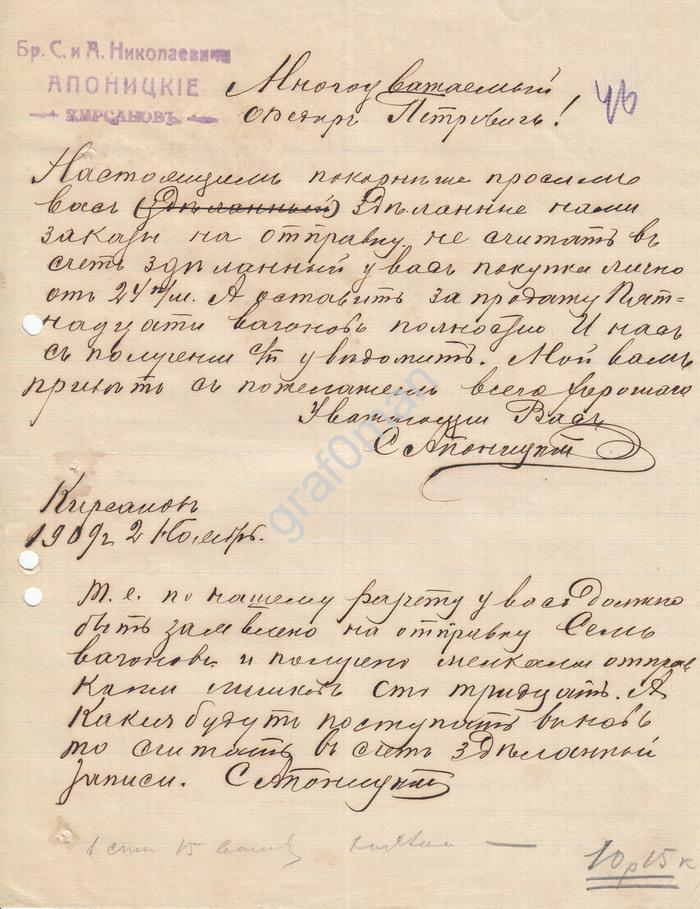 Бр. С. и А. Николаевичи
АПОНИЦКІЕ
КИРСАНОВЪ
Многоуважаемый
Ѳедоръ Петровичъ!
46
Настоящимъ покорнѣйше просимъ
васъ (здѣланный) здѣланные нами
заказы на отправку не считать въ
счетъ зделанный у васъ покупки лично
отъ 24 п/м. А оставить за продажу Пят=
надцати вагоновъ полностію И насъ
съ получении с/п увѣдомить. Мой вамъ
привѣтъ съ пожеланіемъ всего хорошаго
Уважающий Васъ
С Апоницкій
Кирсановъ
1909 г 2 Ноябрь.
Т. е. по нашему расчету у васъ должно
быть заявлено на отправку Семь
вагоновъ и получено мелкими отправ
ками мешковъ сто тридцать. А
какия будутъ поступать вновь
то считать въ счетъ зделанный
записи. С Апоницкій
15
10 р 15 к
graf0man